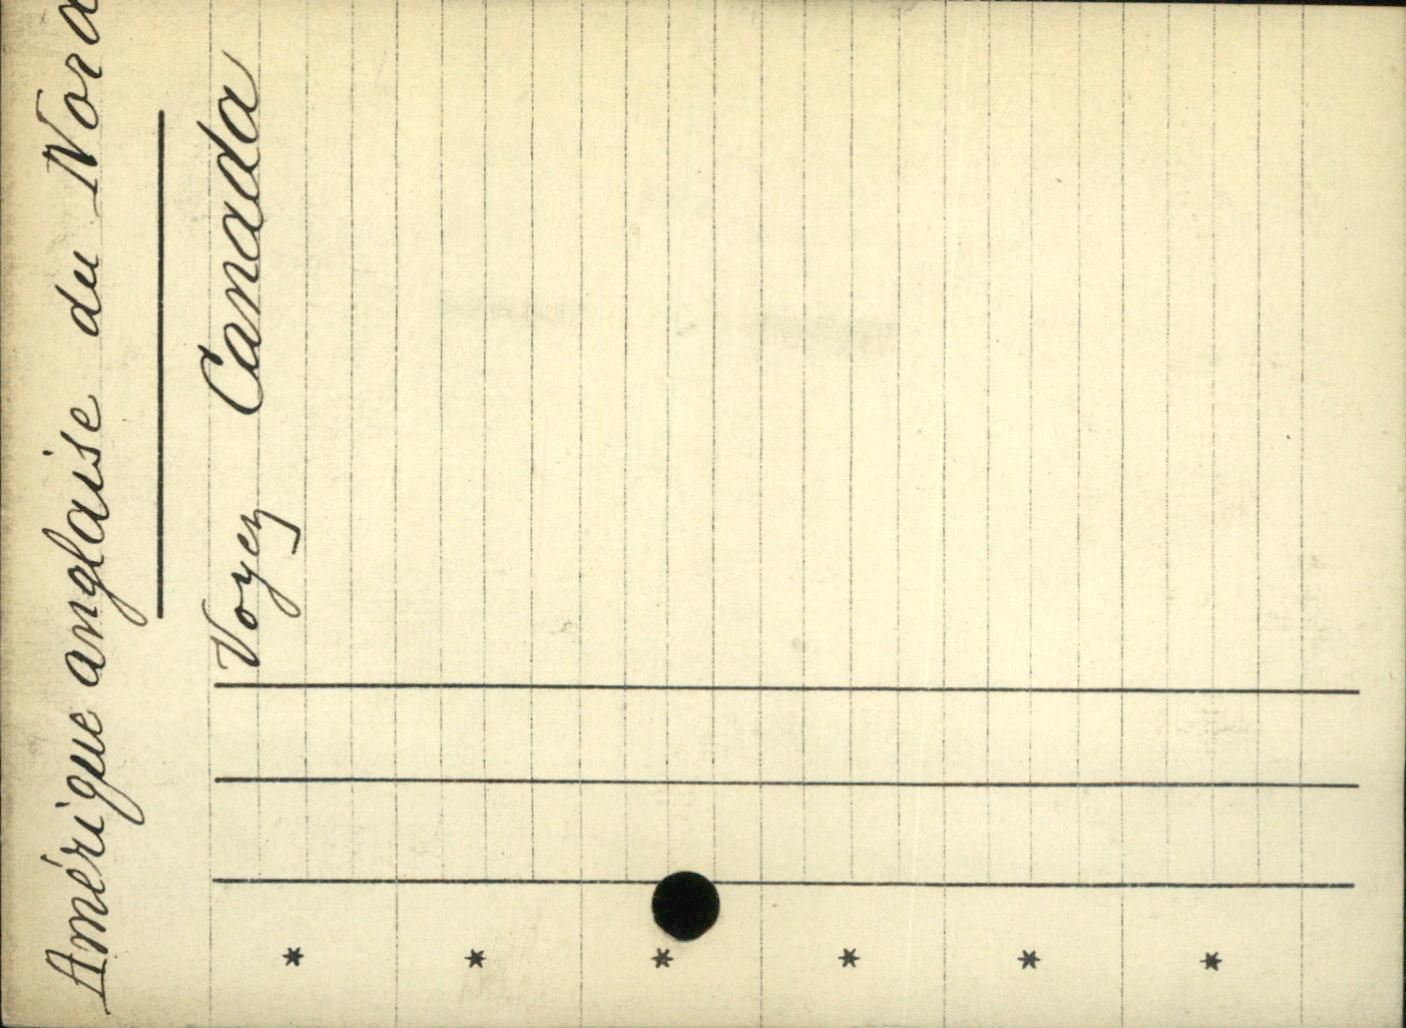 Amérique anglaise du Nord
Voyez Canada
*
*
*
*
*
*